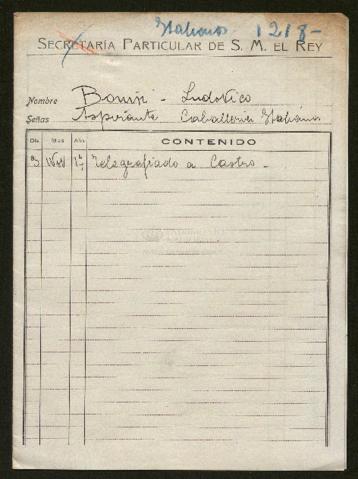 Italianos 1218-
SECRETARÍA PARTICULAR DE S. M. EL REY
Nombre Bonisi - Ludovico
Señas Aspirante Caballeria Italiana
DÍA MES AÑO CONTENIDO
Telegrafiado a Castro -